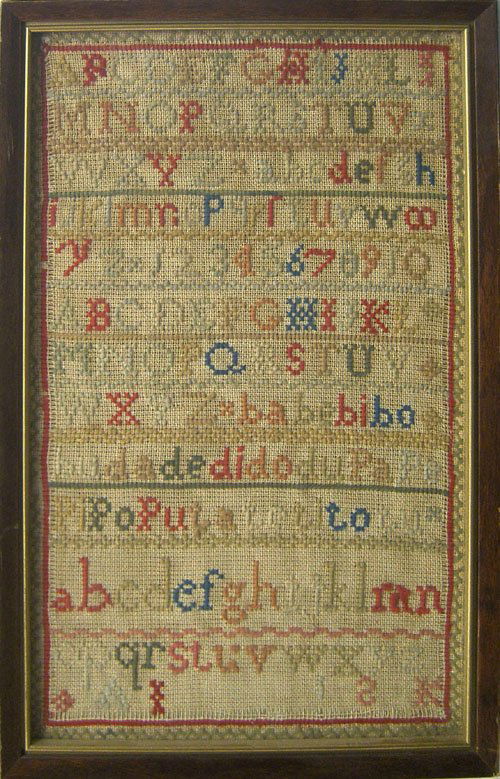 A B C D E F G H I K L I
M N O P Q R S T U V
W X Y Z * a b c d e f g h
i k l m n o p q r ſ t u v w ∞
y z * 1 2 3 4 5 6 7 8 9 10
A B C D E F G H I K L
M N O P Q R S T U V
W X Y Z * ba be bi bo
bu da de di do du Pa Pe
Pi Po Pu ta te ti to
a b c d e f g h i j k l m n
o p q r s t u v w x y z